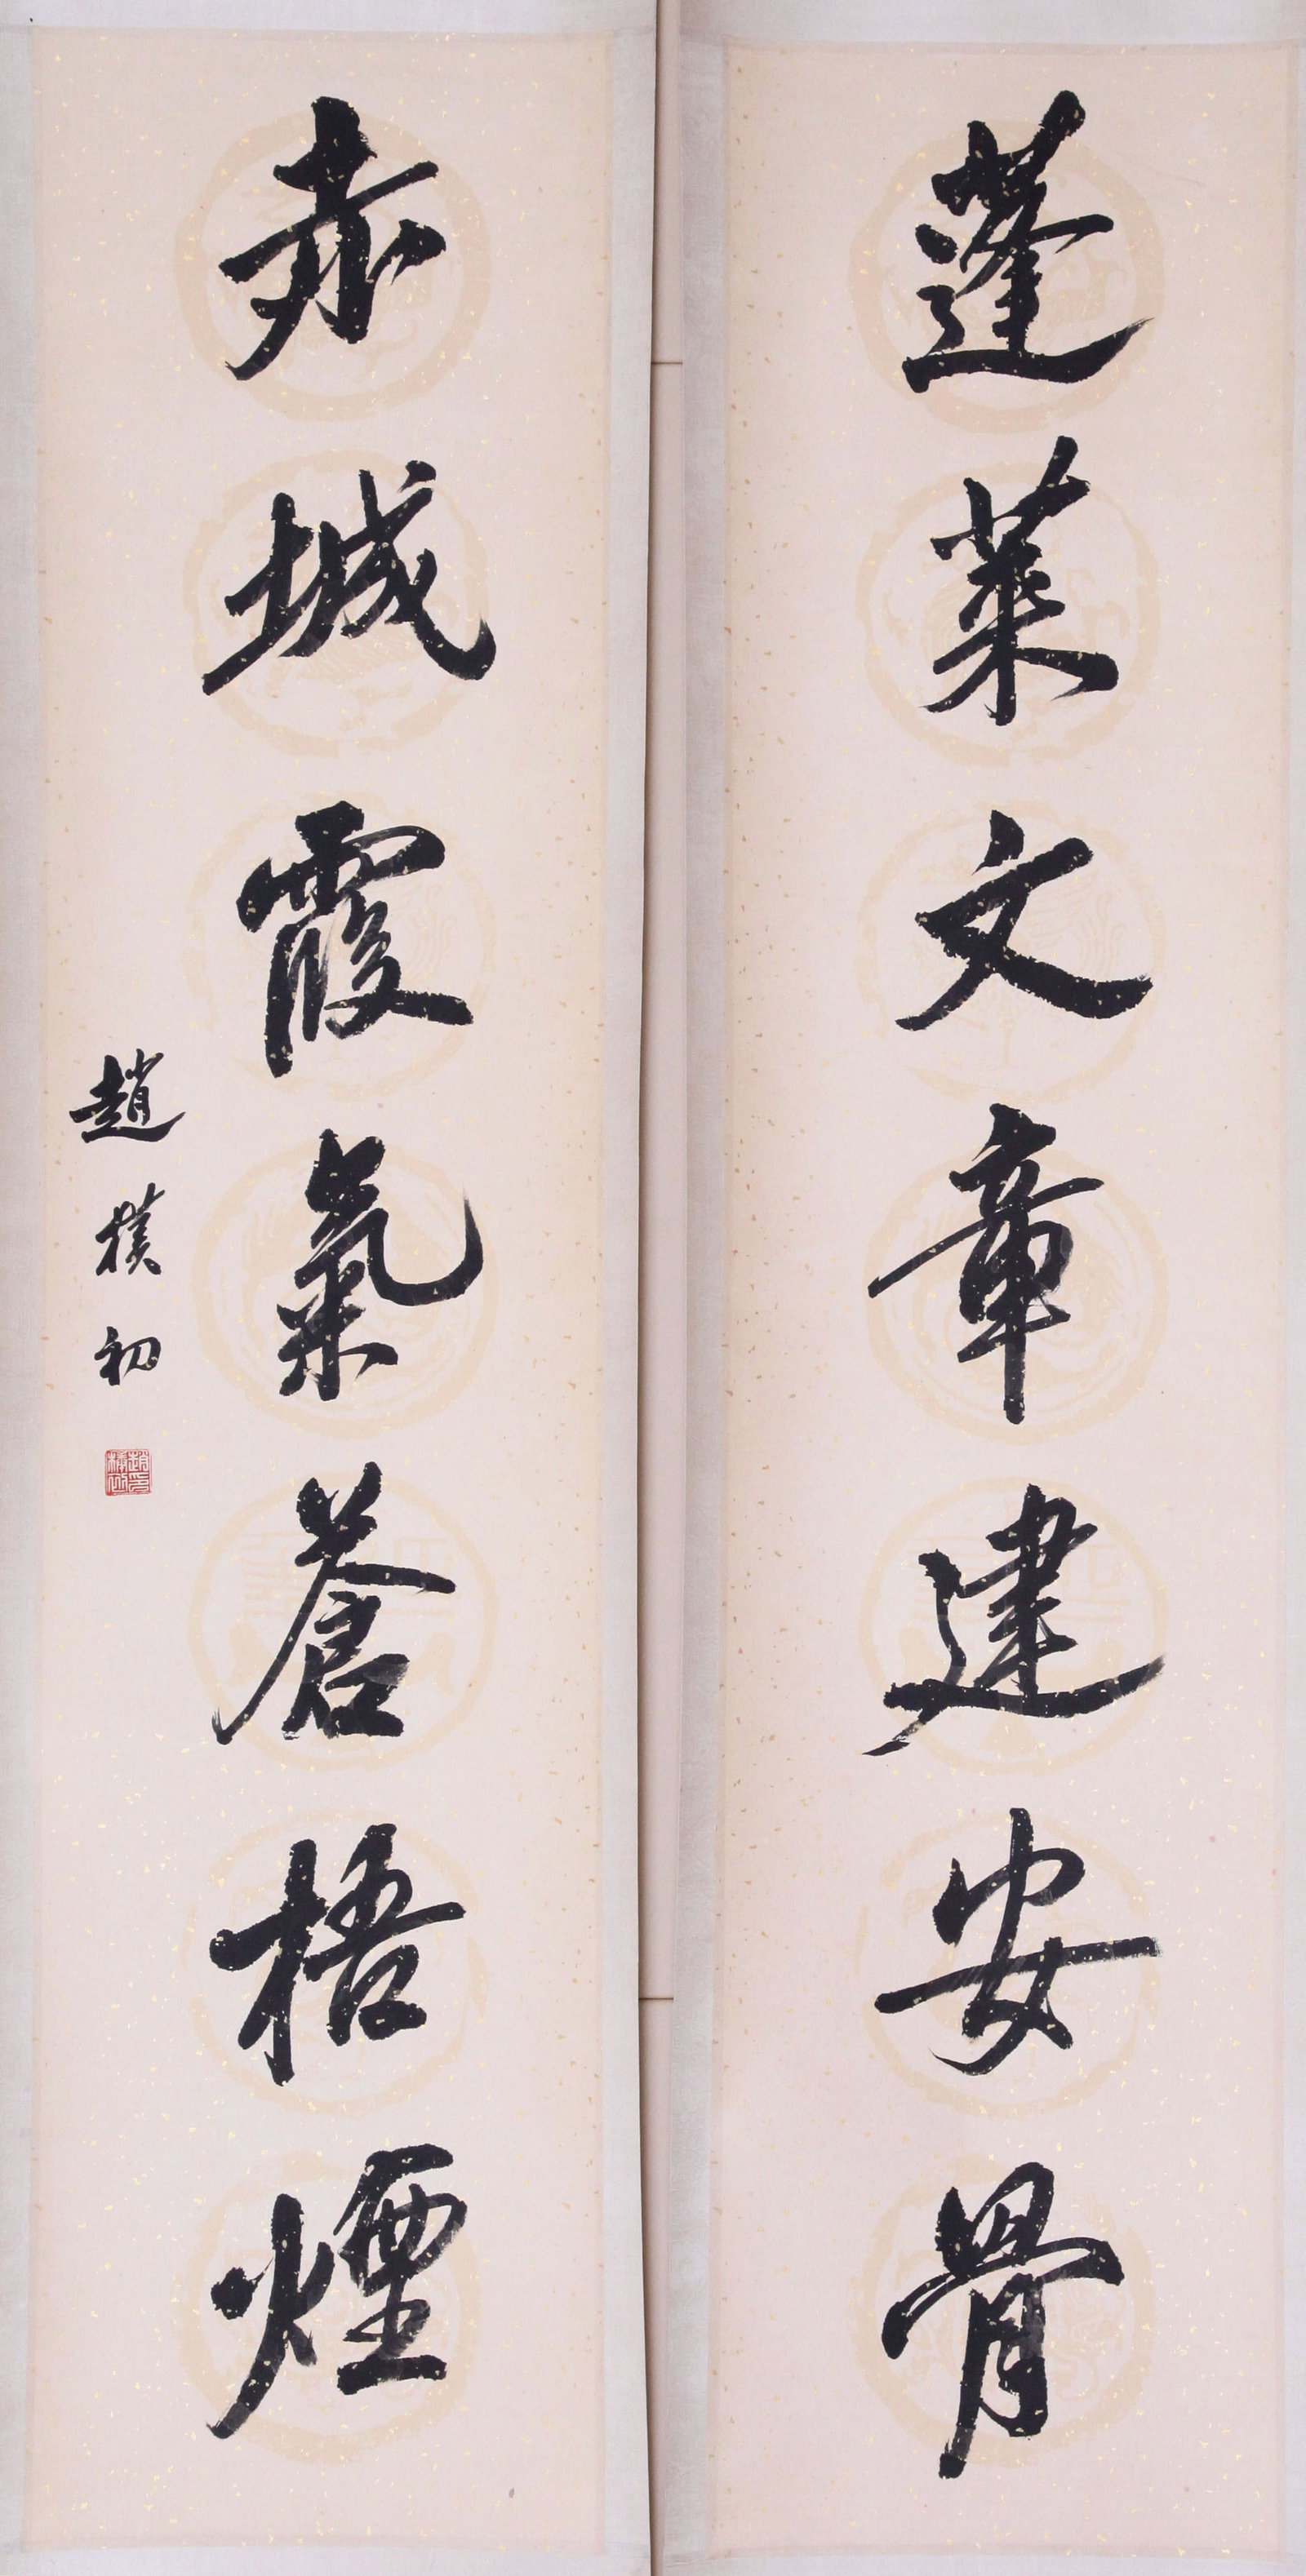 蓬萊文章建安骨
赤城霞氣蒼梧煙
趙樸初